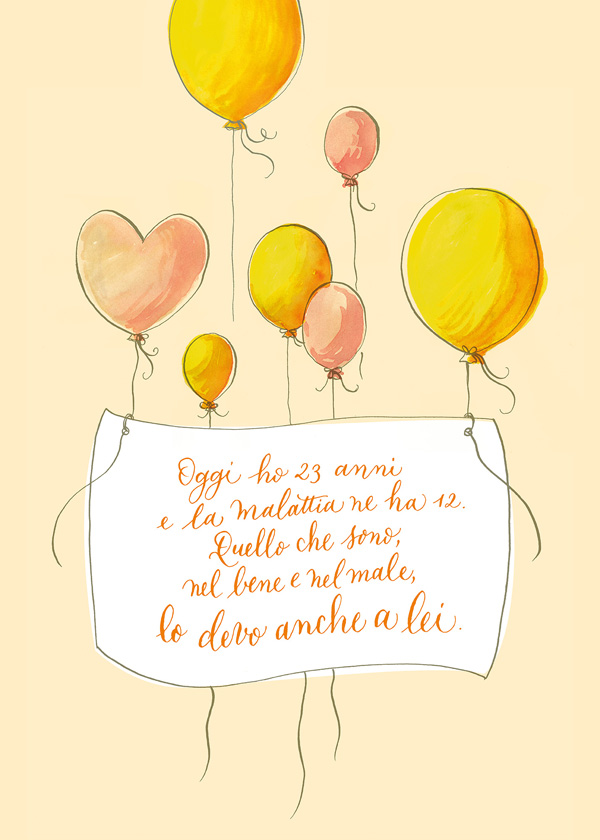 Oggi ho 23 anni
e la malattia ne ha 12.
Quello che sono,
nel bene e nel male,
lo devo anche a lei.